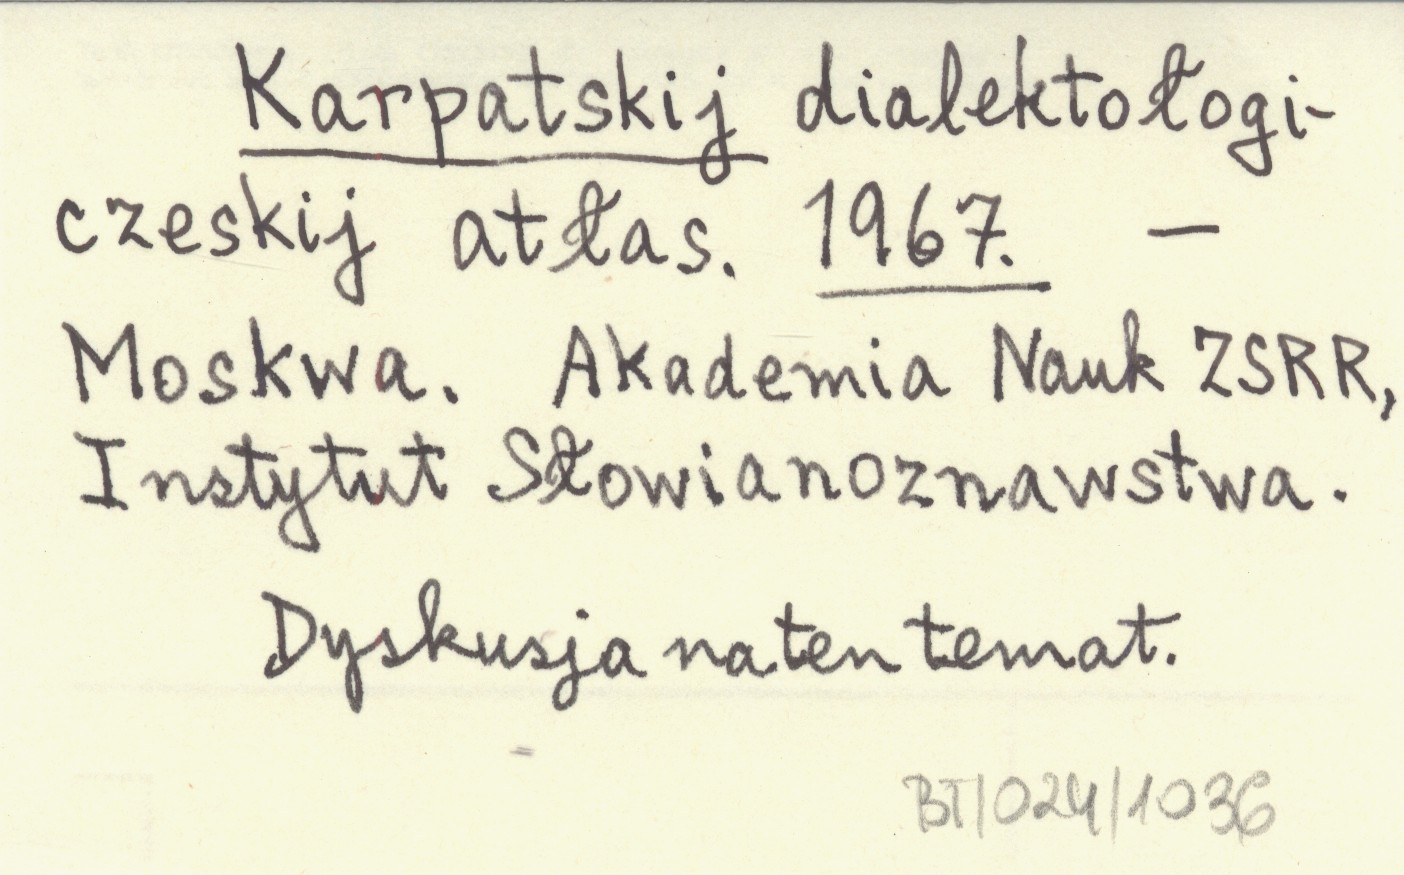 Karpatskij dialektołogi-
czeskij atłas. 1967. —
Moskwa. Akademia Nauk ZSRR,
Instytut Słowianoznawstwa.
Dyskusja na ten temat.
BT/024/1036